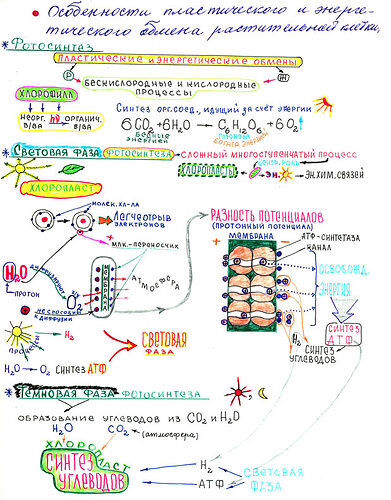 • Особенности пластического и энерге-
тического обмена растительной клетки.
* Фотосинтез
ПЛАСТИЧЕСКИЕ И ЭНЕРГЕТИЧЕСКИЕ ОБМЕНЫ
БЕСКИСЛОРОДНЫЕ И КИСЛОРОДНЫЕ
ПРОЦЕССЫ
ХЛОРОФИЛЛ
НЕОРГ. hν ОРГАНИЧ.
В/ВА В/ВА
СИНТЕЗ ОРГ.СОЕД., ИДУЩИЙ ЗА СЧЁТ ЭНЕРГИИ
6CO₂ + 6H₂O → C₆H₁₂O₆ + 6O₂↑
БЕДНЫЕ
ЭНЕРГИЕЙ
ГЛЮКОЗА
БОГАТА ЭНЕРГИЕЙ
* СВЕТОВАЯ ФАЗА ФОТОСИНТЕЗА – СЛОЖНЫЙ МНОГОСТУПЕНЧАТЫЙ ПРОЦЕСС
ХЛОРОПЛАСТ
ЦЕНТР. РОЛЬ
ХЛОРОПЛАСТЫ ЭН. ЭН.ХИМ.СВЯЗЕЙ
МОЛЕК. ХЛ-ЛА
ЛЕГЧЕ ОТРЫВ
ЭЛЕКТРОНОВ
МЛК.-ПЕРЕНОСЧИК
РАЗНОСТЬ ПОТЕНЦИАЛОВ
(ПРОТОННЫЙ ПОТЕНЦИАЛ)
МЕМБРАНА
АТФ-СИНТЕТАЗА
КАНАЛ
H₂O
ПРОТОН
O₂
НЕ СПОСОБНЫ
К ДИФФУЗИИ
МЕМБРАНА
АТМОСФЕРА
ОСВОБОЖД.
ЭНЕРГИЯ
СИНТЕЗ
АТФ
H₂
СИНТЕЗ
УГЛЕВОДОВ
ПРОЦЕССЫ
H₂
H₂O → O₂ СИНТЕЗ АТФ
СВЕТОВАЯ
ФАЗА
* ТЕМНОВАЯ ФАЗА ФОТОСИНТЕЗА
ОБРАЗОВАНИЕ УГЛЕВОДОВ ИЗ CO₂ И H₂O
H₂O CO₂ (АТМОСФЕРА)
ХЛОРОПЛАСТ
СИНТЕЗ
УГЛЕВОДОВ
H₂
АТФ
СВЕТОВАЯ
ФАЗА